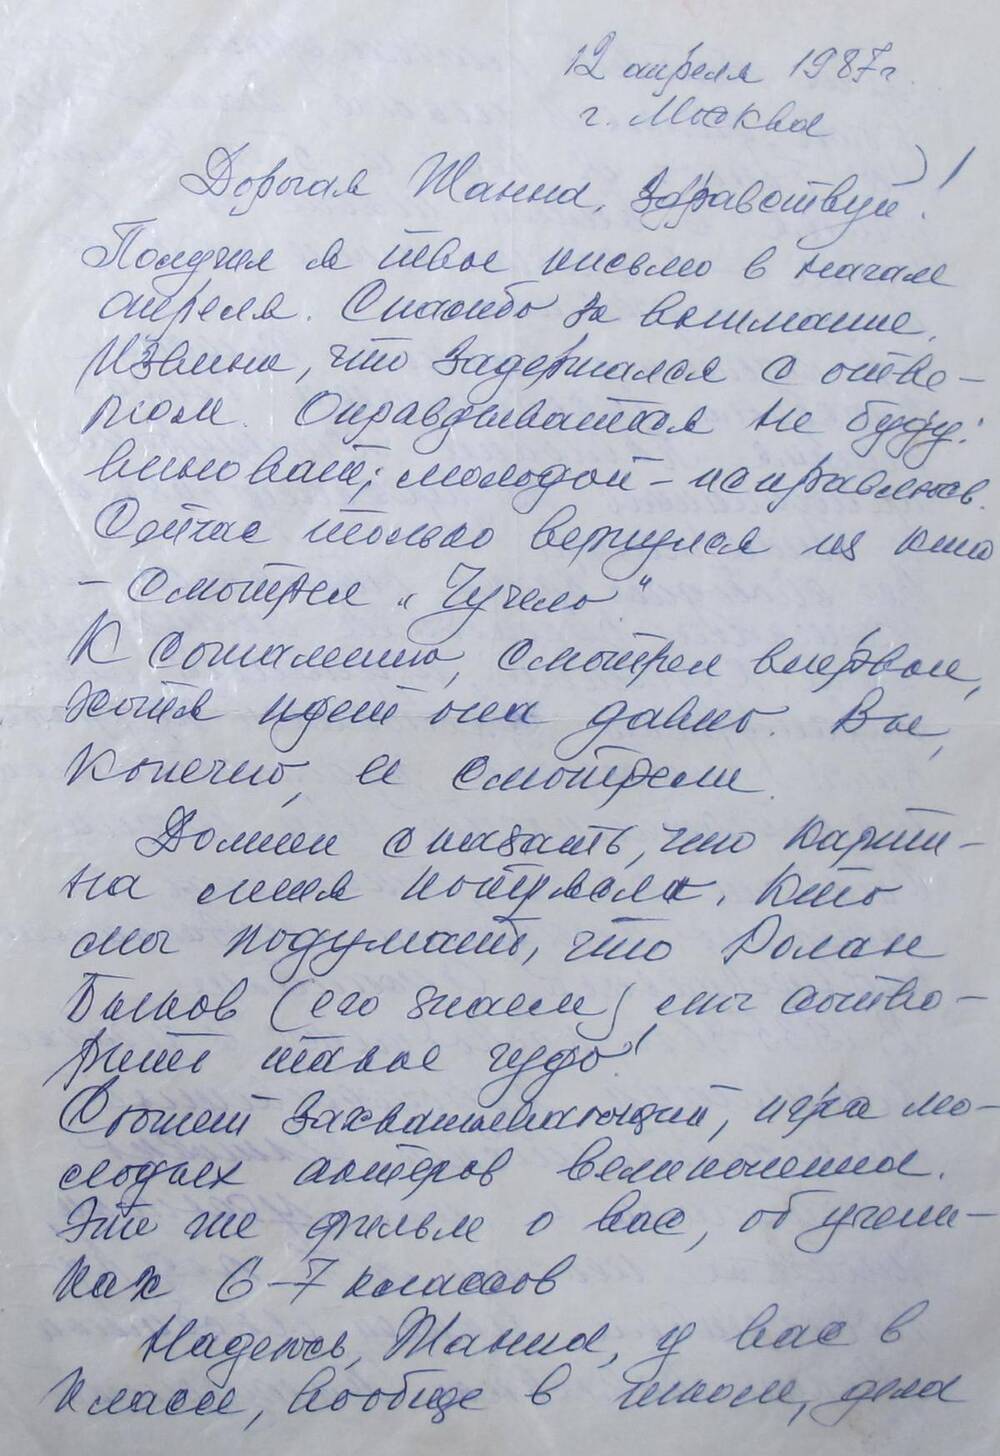 12 апреля 1987 г.
г. Москва
Дорогая Жанна, здравствуй!
Получил я твое письмо в начале
апреля. Спасибо за внимание.
Извини, что задержался с отве-
том. Оправдываться не буду:
виноват; молодой - исправлюсь.
Сейчас только вернулся из кино
- смотрел „Чучело"
К сожалению, смотрел впервые,
хотя идет она давно. Вы,
конечно, ее смотрели.
Должен сказать, что карти-
на меня потрясла. Кто
мог подумать, что Ролан
Быков (его знаем) мог сотво-
рить такое чудо!
Сюжет захватывающий, игра мо-
лодых актеров великолепна.
Это же фильм о вас, об учени-
ках 6-7 классов
Надеюсь, Жанна, у вас в
классе, вообще в школе, дела